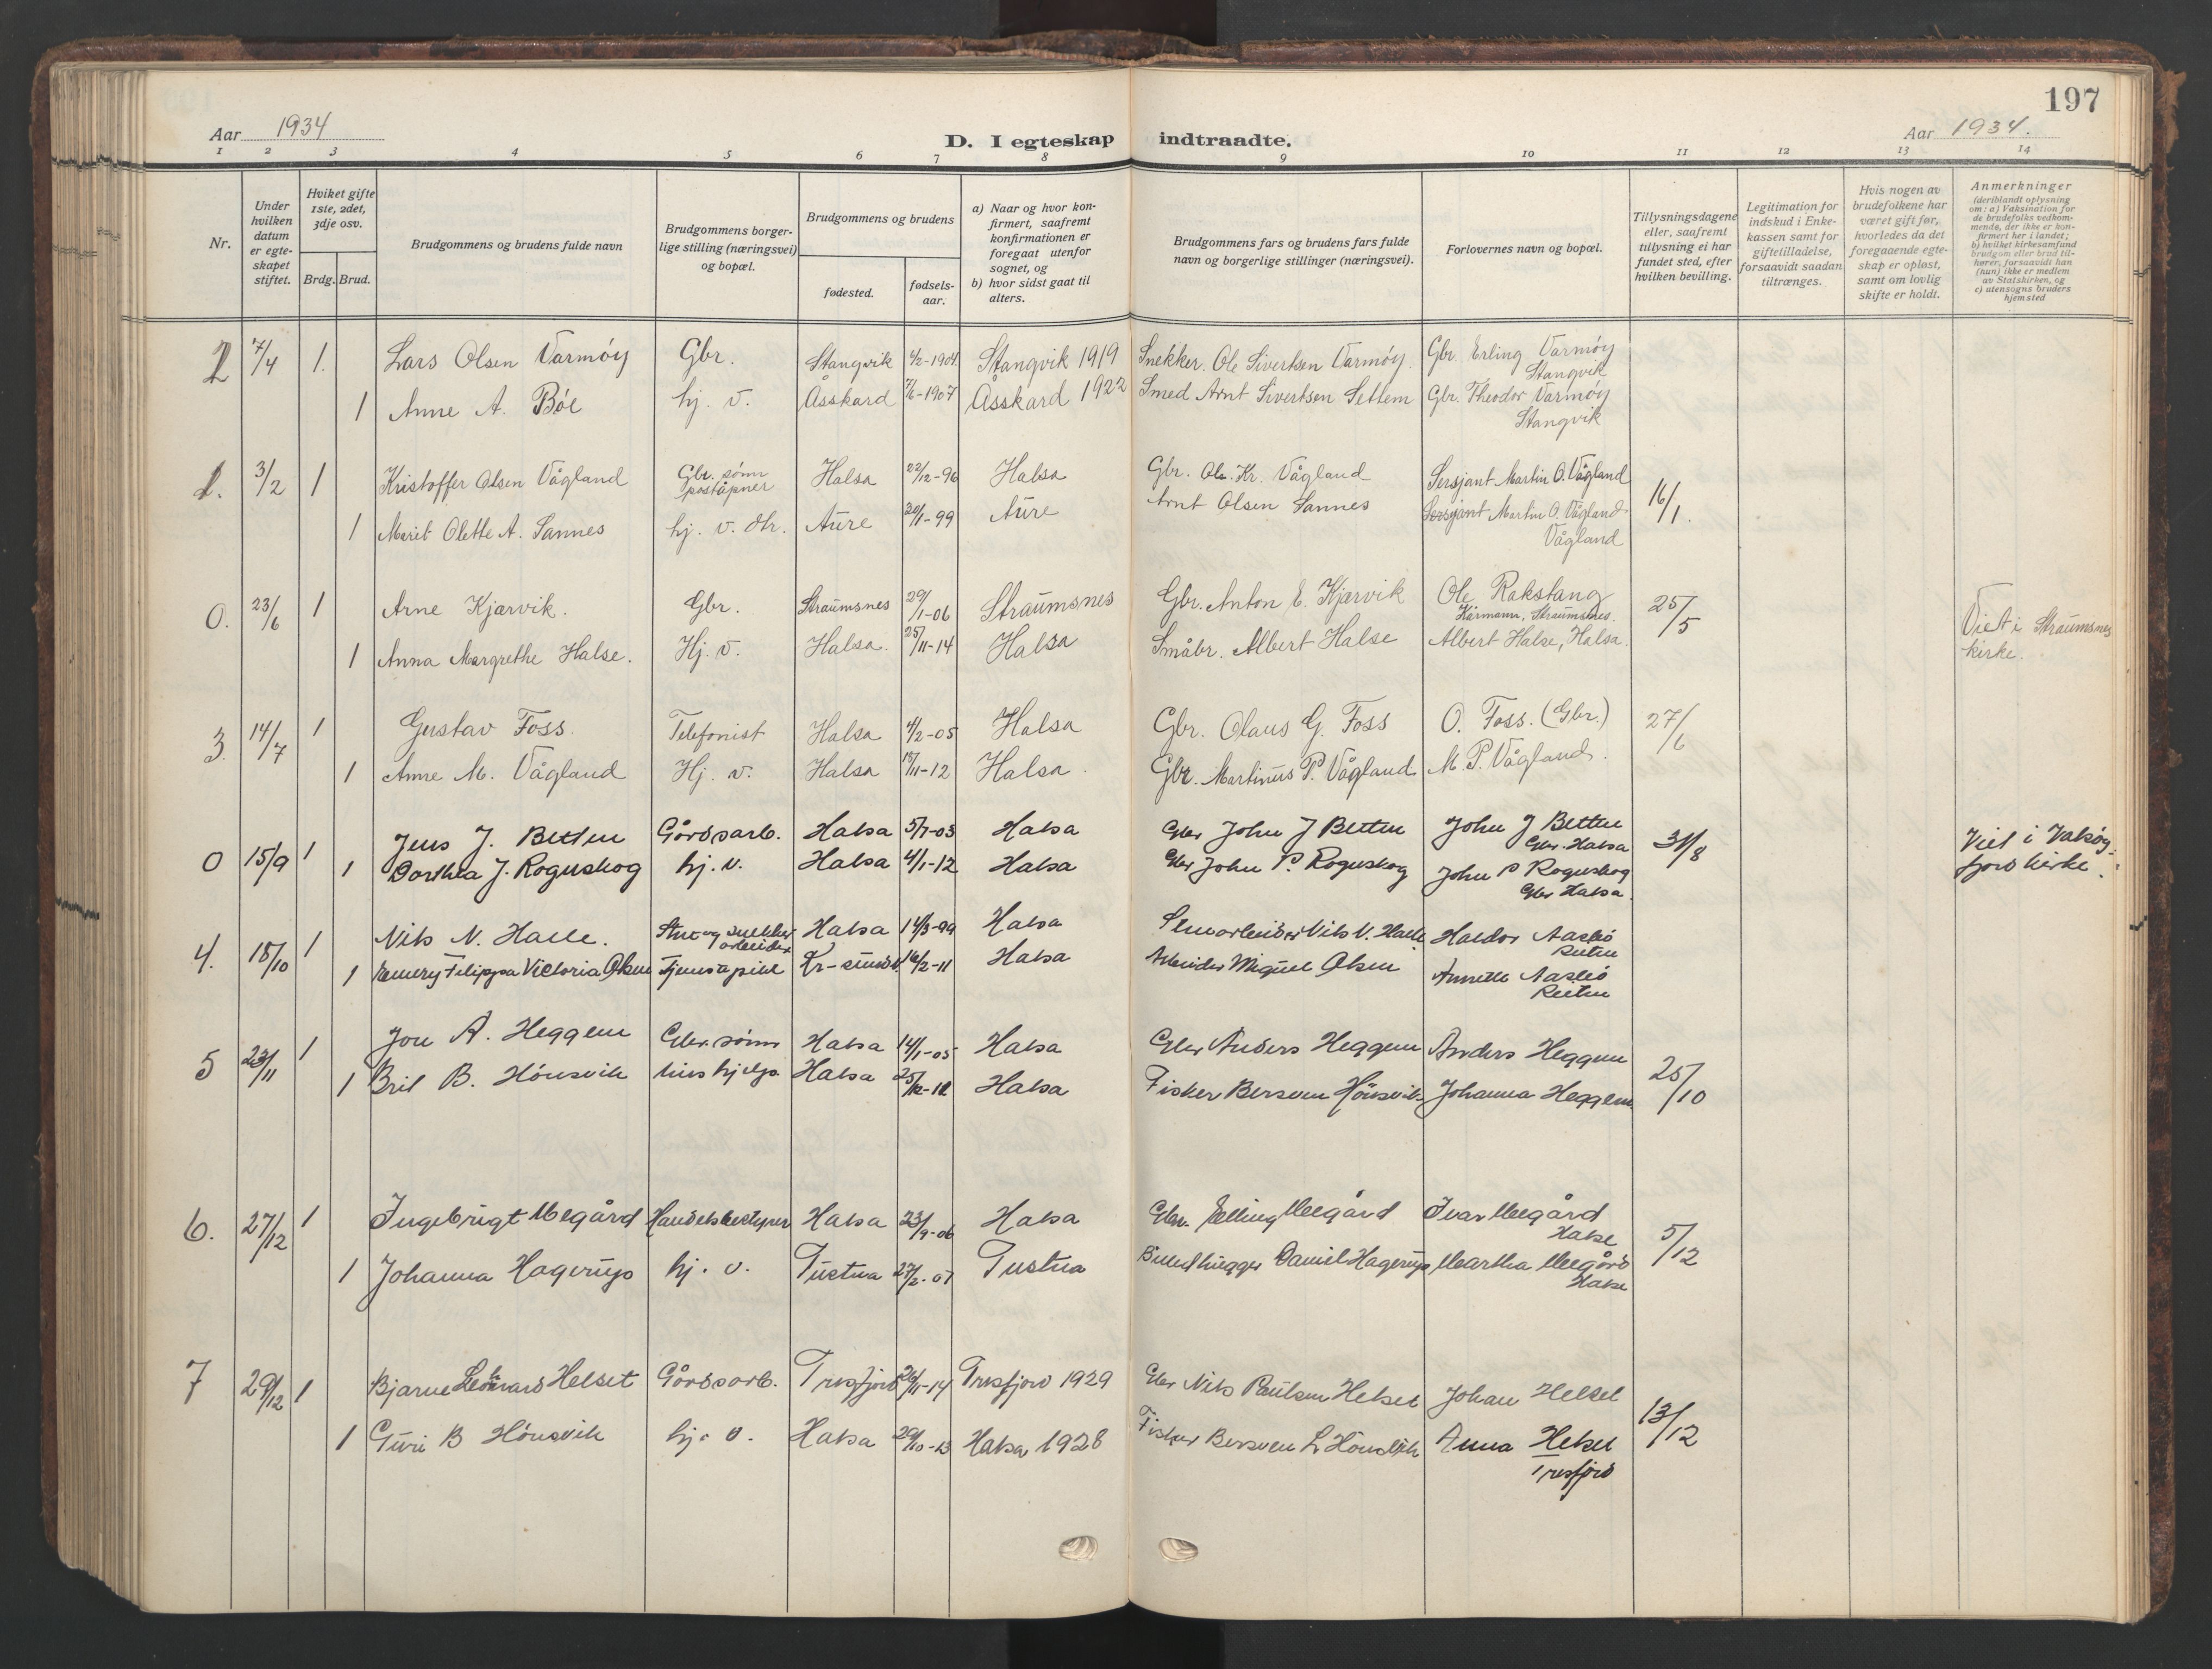 197
Aar 1934
D. I egteskap indtraadte.
Aar 1934.
1 2 3 4 5 6 7 8 9 10 11 12 13 14
Nr.
Under hvilken datum er egteskapet stiftet.
Hvilket gifte 1ste, 2det, 3dje osv.
Brdg. Brud.
Brudgommens og brudens fulde navn
Brudgommens borgerlige stilling (næringsvei) og bopæl.
Brudgommens og brudens
fødested.
fødselsaar.
a) Naar og hvor konfirmert, saafremt konfirmationen er foregaat utenfor sognet, og
b) hvor sidst gaat til alters.
Brudgommens fars og brudens fars fulde navn og borgerlige stillinger (næringsvei).
Forlovernes navn og bopæl.
Tillysningsdagene eller, saafremt tillysning ei har fundet sted, efter hvilken bevilling.
Legitimation for indskud i Enkekassen samt for giftetilladelse, forsaavidt saadan tiltrænges.
Hvis nogen av brudefolkene har været gift før, hvorledes da det foregaaende egteskap er opløst, samt om lovlig skifte er holdt.
Anmerkninger (deriblandt oplysning om: a) Vaksination for de brudefolks vedkommende, der ikke er konfirmert her i landet; b) hvilket kirkesamfund brudgom eller brud tilhører, forsaavidt han (hun) ikke er medlem av Statskirken, og c) utensogns bruders hjemsted
2 7/4 1. Lars Olsen Varmøy Gbr. Stangvik 4/2-1904 Stangvik 1919 Snekker. Ole Sivertsen Varmøy. Gbr. Erling Varmøy
Stangvik
1 Anne A. Bøe hj. v. Åsskard 7/6-1907 Åsskard 1922 Smed Arnt Sivertsen Settem Gbr. Theodor Varmøy
Stangvik
1. 3/2 1 Kristoffer Olsen Vågland Gbr. sønn poståpner Halsa 22/12-96 Halsa Gbr. Ole Kr. Vågland Sersjant Martin O. Vågland 16/1.
1 Marit Olette A. Sannes hj. v. dtr. Aure 20/1-99 Aure Arnt Olsen Sannes Sersjant Martin O. Vågland
Vågland
0. 23/6 1 Arne Kjørvik. Gbr. Straumsnes 29/1-06 Straumsnes Gbr. Anton E. Kjørvik Ole Rakstang 25/5
Straumsnes. Viet i Straumsnes
1 Anna Margrethe Halse. Hj. v. Halsa. 25/11-14 Halsa Småbr. Albert Halse Albert Halse, Halsa. kirke.
3. 14/7 1 Gustav Foss. Telefonist Halsa 4/2-05 Halsa Gbr. Olaus G. Foss O. Foss. (Gbr.) 27/6
1 Anne M. Vågland Hj. v. Halsa /11-12 Halsa. Gbr. Martinus P. Vågland M. P. Vågland.
0 15/9 1 Jens J. Betten Gårdsarb. Halsa 5/7-03 Halsa Gbr John J Betten John J Betten 31/8 Viet i Valsøy-
Gbr. Halsa fjord kirke.
1 Dorthea J. Roguskog hj. v. Halsa 4/1-12 Halsa Gbr John P. Roguskog John P Roguskog
Gbr Halsa.
4. 18/10 1 Nils N. Halle. snekker arbeider Halsa 14/3-99 Halsa Nils N. Halle Haldor Aasbø
1 Emery Filippa Victoria Olsen Tjenestepike Kr-sund N. 16/2-11 Halsa Arbeider Miguel Olsen Annette Aasbø
5 23/11 1 Jon A. Heggem Gbr. sønn Halsa 14/1-05 Halsa Gbr Anders Heggem Anders Heggem 25/10
1 Brit B. Hönsvik hus hjelp. Halsa 25/12-12 Halsa Fisker Bersven Hönsvik Johanna Heggem
6. 27/12 1 Ingebrigt Megård Handelsbestyrer Halsa 23/9-06 Halsa Gbr. Elling Megård Ivar Megård 5/12
Halse
1 Johanna Hagerup hj. v. Tustna 27/2-07 Tustna Daniel Hagerup Martha Megård
Halse
7 29/12 1 Bjarne Leonhard Helset Gårdsarb. Tresfjord 26/11-14 Tresfjord 1929 Gbr Nils Paulsen Helset Johan Helset 13/12
1 Guri B Hönsvik hj. v. Halsa 29/10-13 Halsa 1928 Fisker Bersven L Hönsvik Anna Helset
Tresfjord